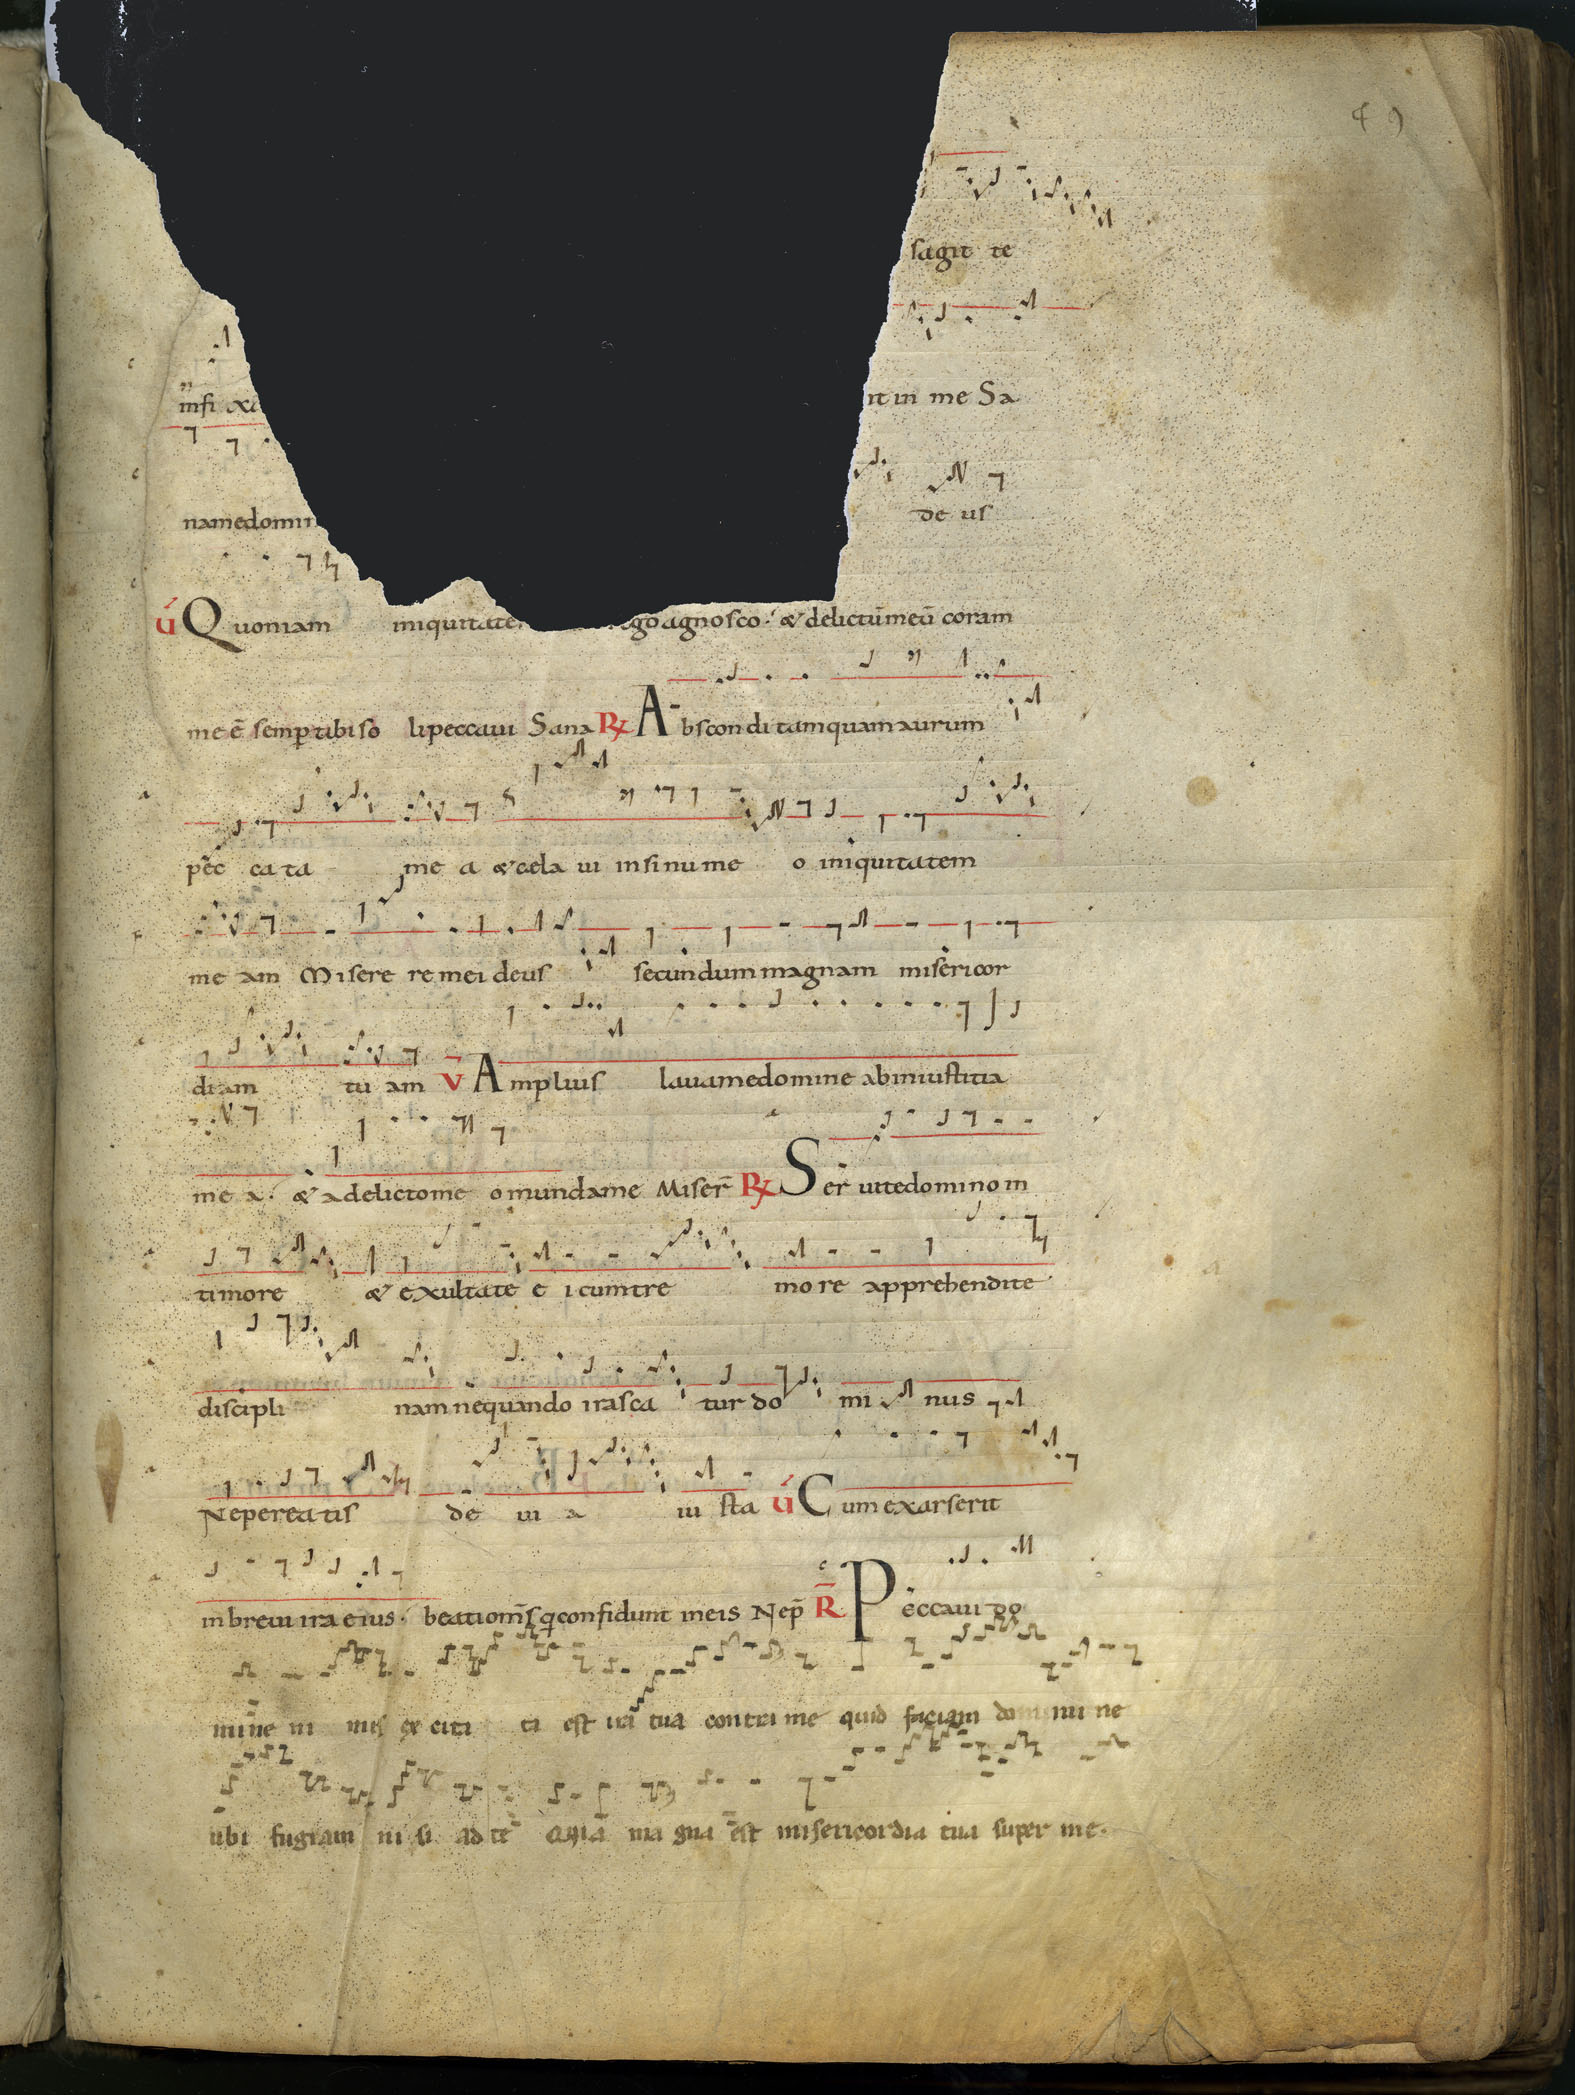 49
sagit te
infi
it in me Sa
namedomin de us
v Quoniam iniquitate ego agnosco. & delictū meū coram
me ē semp tibi so li peccaui Sana R Abscondi tamquam aurum
pec ca ta me a & cela ui in sinu me o iniquitatem
me am Misere re mei deus secundum magnam misericor
diam tu am V Amplius laua me domine ab iniustitia
me a. & a delicto me o munda me Miser R Ser uite domino in
timore & exultate e i cum tre mo re apprehendite
discipli nam nequando irasca tur do mi nus
Ne perea tis de ui a iu sta v Cum exarserit
in breui ira eius. beati om̄s q confidunt in eis Nep R Peccaui do
mine ni mis ex citi ta est ira tua contra me quid faciam do mi ne
ubi fugiam ni si ad te Quia ma gna est misericordia tua super me.